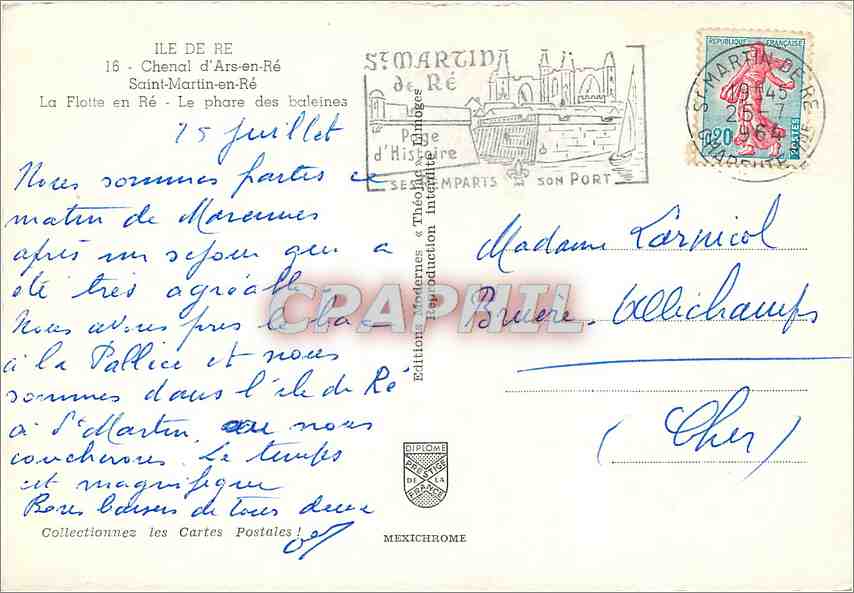 ILE DE RE
16 - Chenal d'Ars-en-Ré
Saint-Martin-en-Ré
La Flotte en Ré - Le phare des baleines
15 juillet
Nous sommes parties ce
matin de Marennes
après un séjour qui a
été très agréable
Nous avons pris le bac
à la Pallice et nous
sommes dans l'île de Ré
à St Martin, nous
coucherons. Le temps
est magnifique
Bons baisers de tous deux
Collectionnez les Cartes Postales !
Editions Modernes « Théojac » Limoges
Reproduction interdite
DIPLOME
PRESTIGE
DE LA
FRANCE
MEXICHROME
ST MARTIN
de RÉ
Page
d'Histoire
SES REMPARTS SON PORT
REPUBLIQUE FRANÇAISE
0,20
POSTES
ST MARTIN DE RE
19H45
25-7
1964
Madame Larpicol
Bruère-Allichamps
(Cher)
CPAPHIL